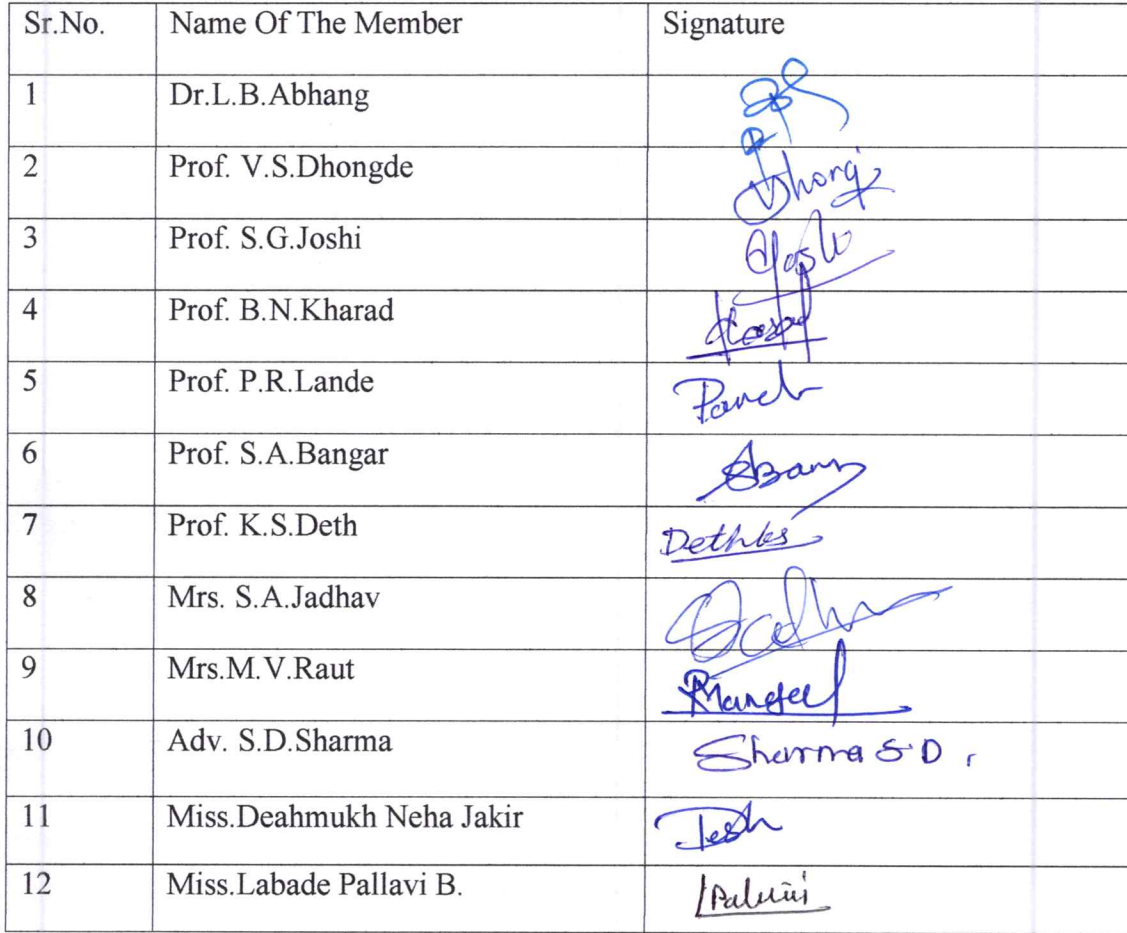 Sr.No. Name Of The Member Signature
1 Dr.L.B.Abhang
2 Prof. V.S.Dhongde
3 Prof. S.G.Joshi
4 Prof. B.N.Kharad
5 Prof. P.R.Lande
6 Prof. S.A.Bangar
7 Prof. K.S.Deth Dethks
8 Mrs. S.A.Jadhav
9 Mrs.M.V.Raut
10 Adv. S.D.Sharma Sharma S.D.
11 Miss.Deahmukh Neha Jakir Desh
12 Miss.Labade Pallavi B.